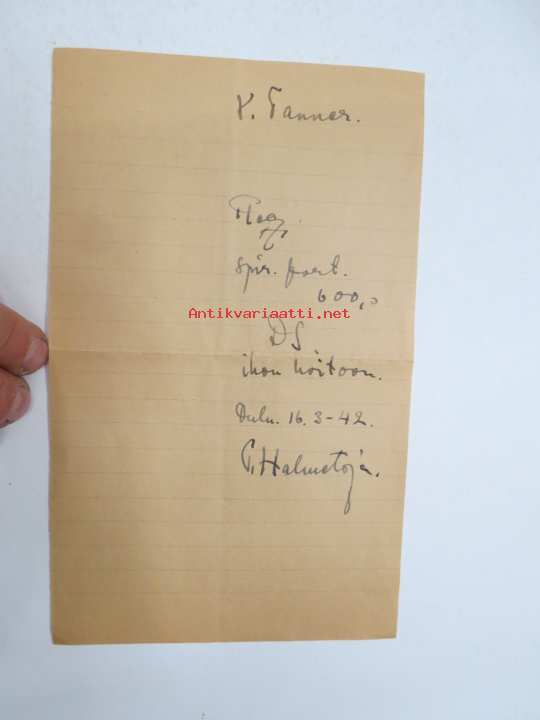 V. Tanner.
Rec.
spir. fort.
600,0
Antikvariaatti.net
DS
ihon hoitoon.
Oulu. 16.3-42.
T. Halmetoja.